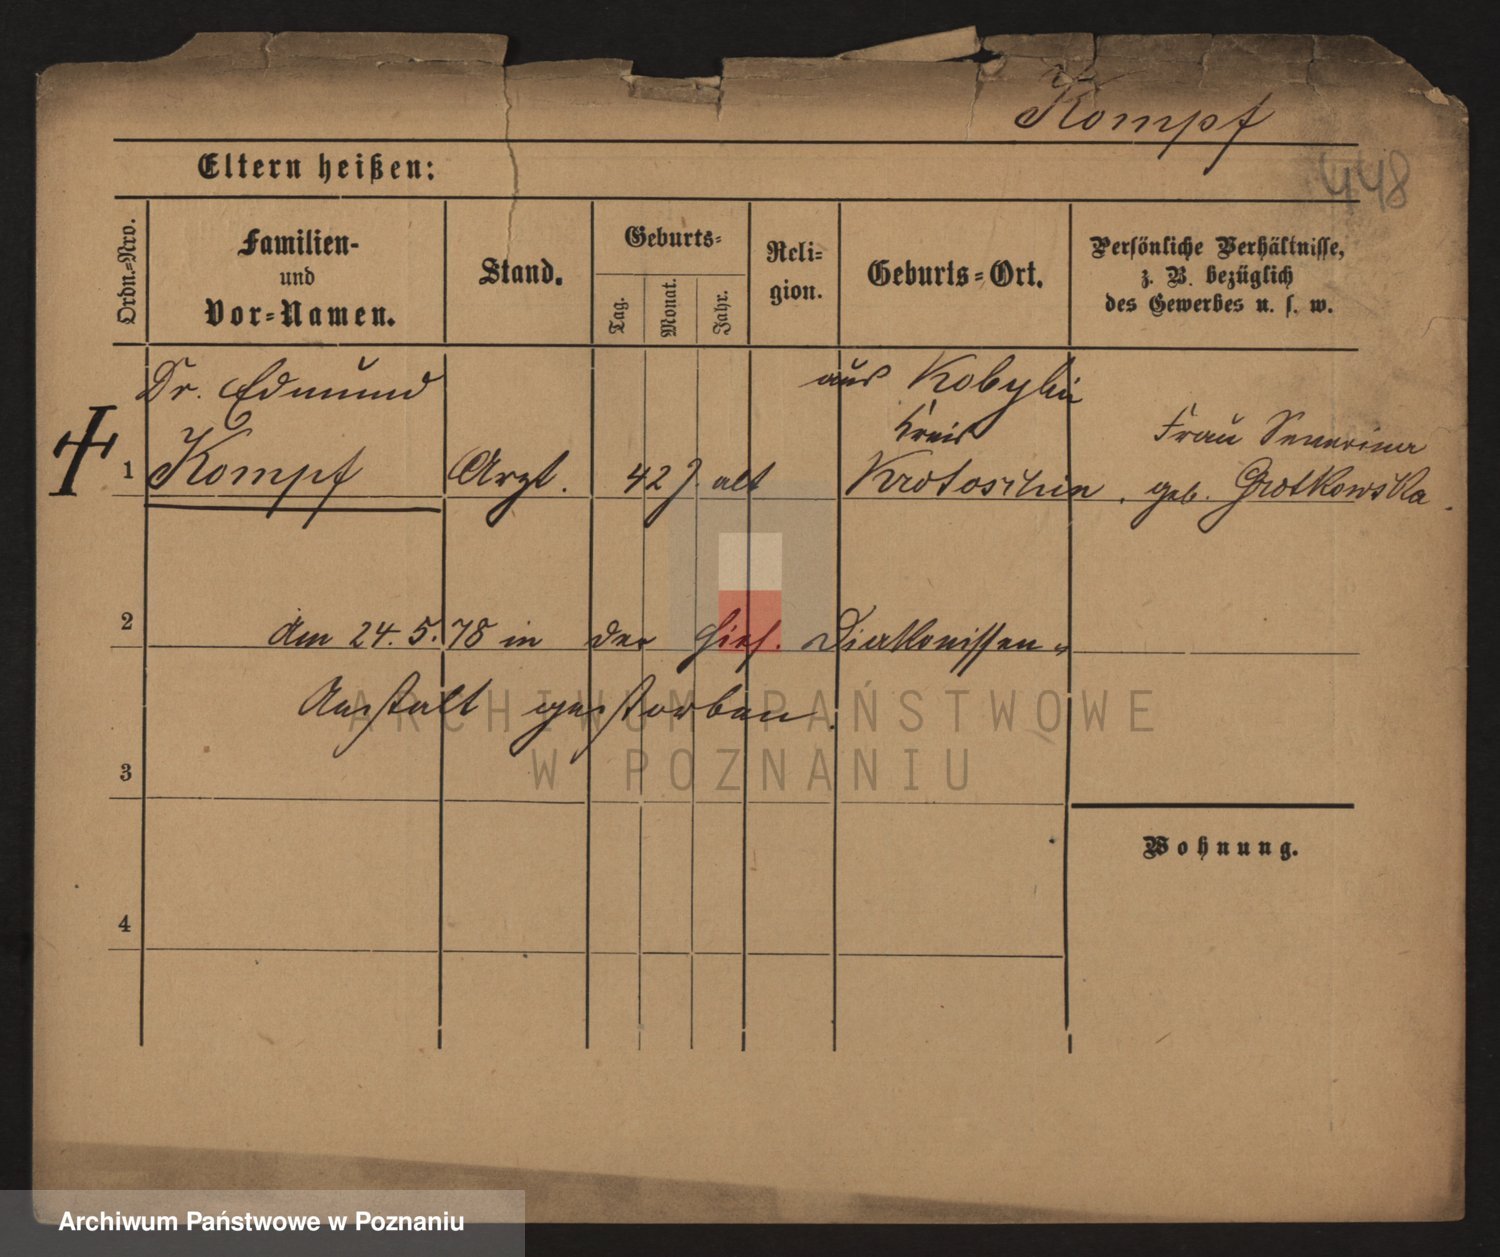 Kompf
448
Eltern heißen:
Ordn.-Nro.
Familien-
und
Vor-Namen.
Stand.
Geburts-
Tag.
Monat.
Jahr.
Reli-
gion.
Geburts-Ort.
Persönliche Verhältnisse,
z. B. bezüglich
des Gewerbes u. s. w.
Dr. Edmund
Kompf
Arzt.
42 J. alt
aus Kobylin
Kreis
Krotoschin.
Frau Severina
geb. Grotkowska.
1
2
am 24.5.78 in der hies. Diakonissen-
Anstalt gestorben.
3
4
Wohnung.
ARCHIWUM PAŃSTWOWE
W POZNANIU
Archiwum Państwowe w Poznaniu